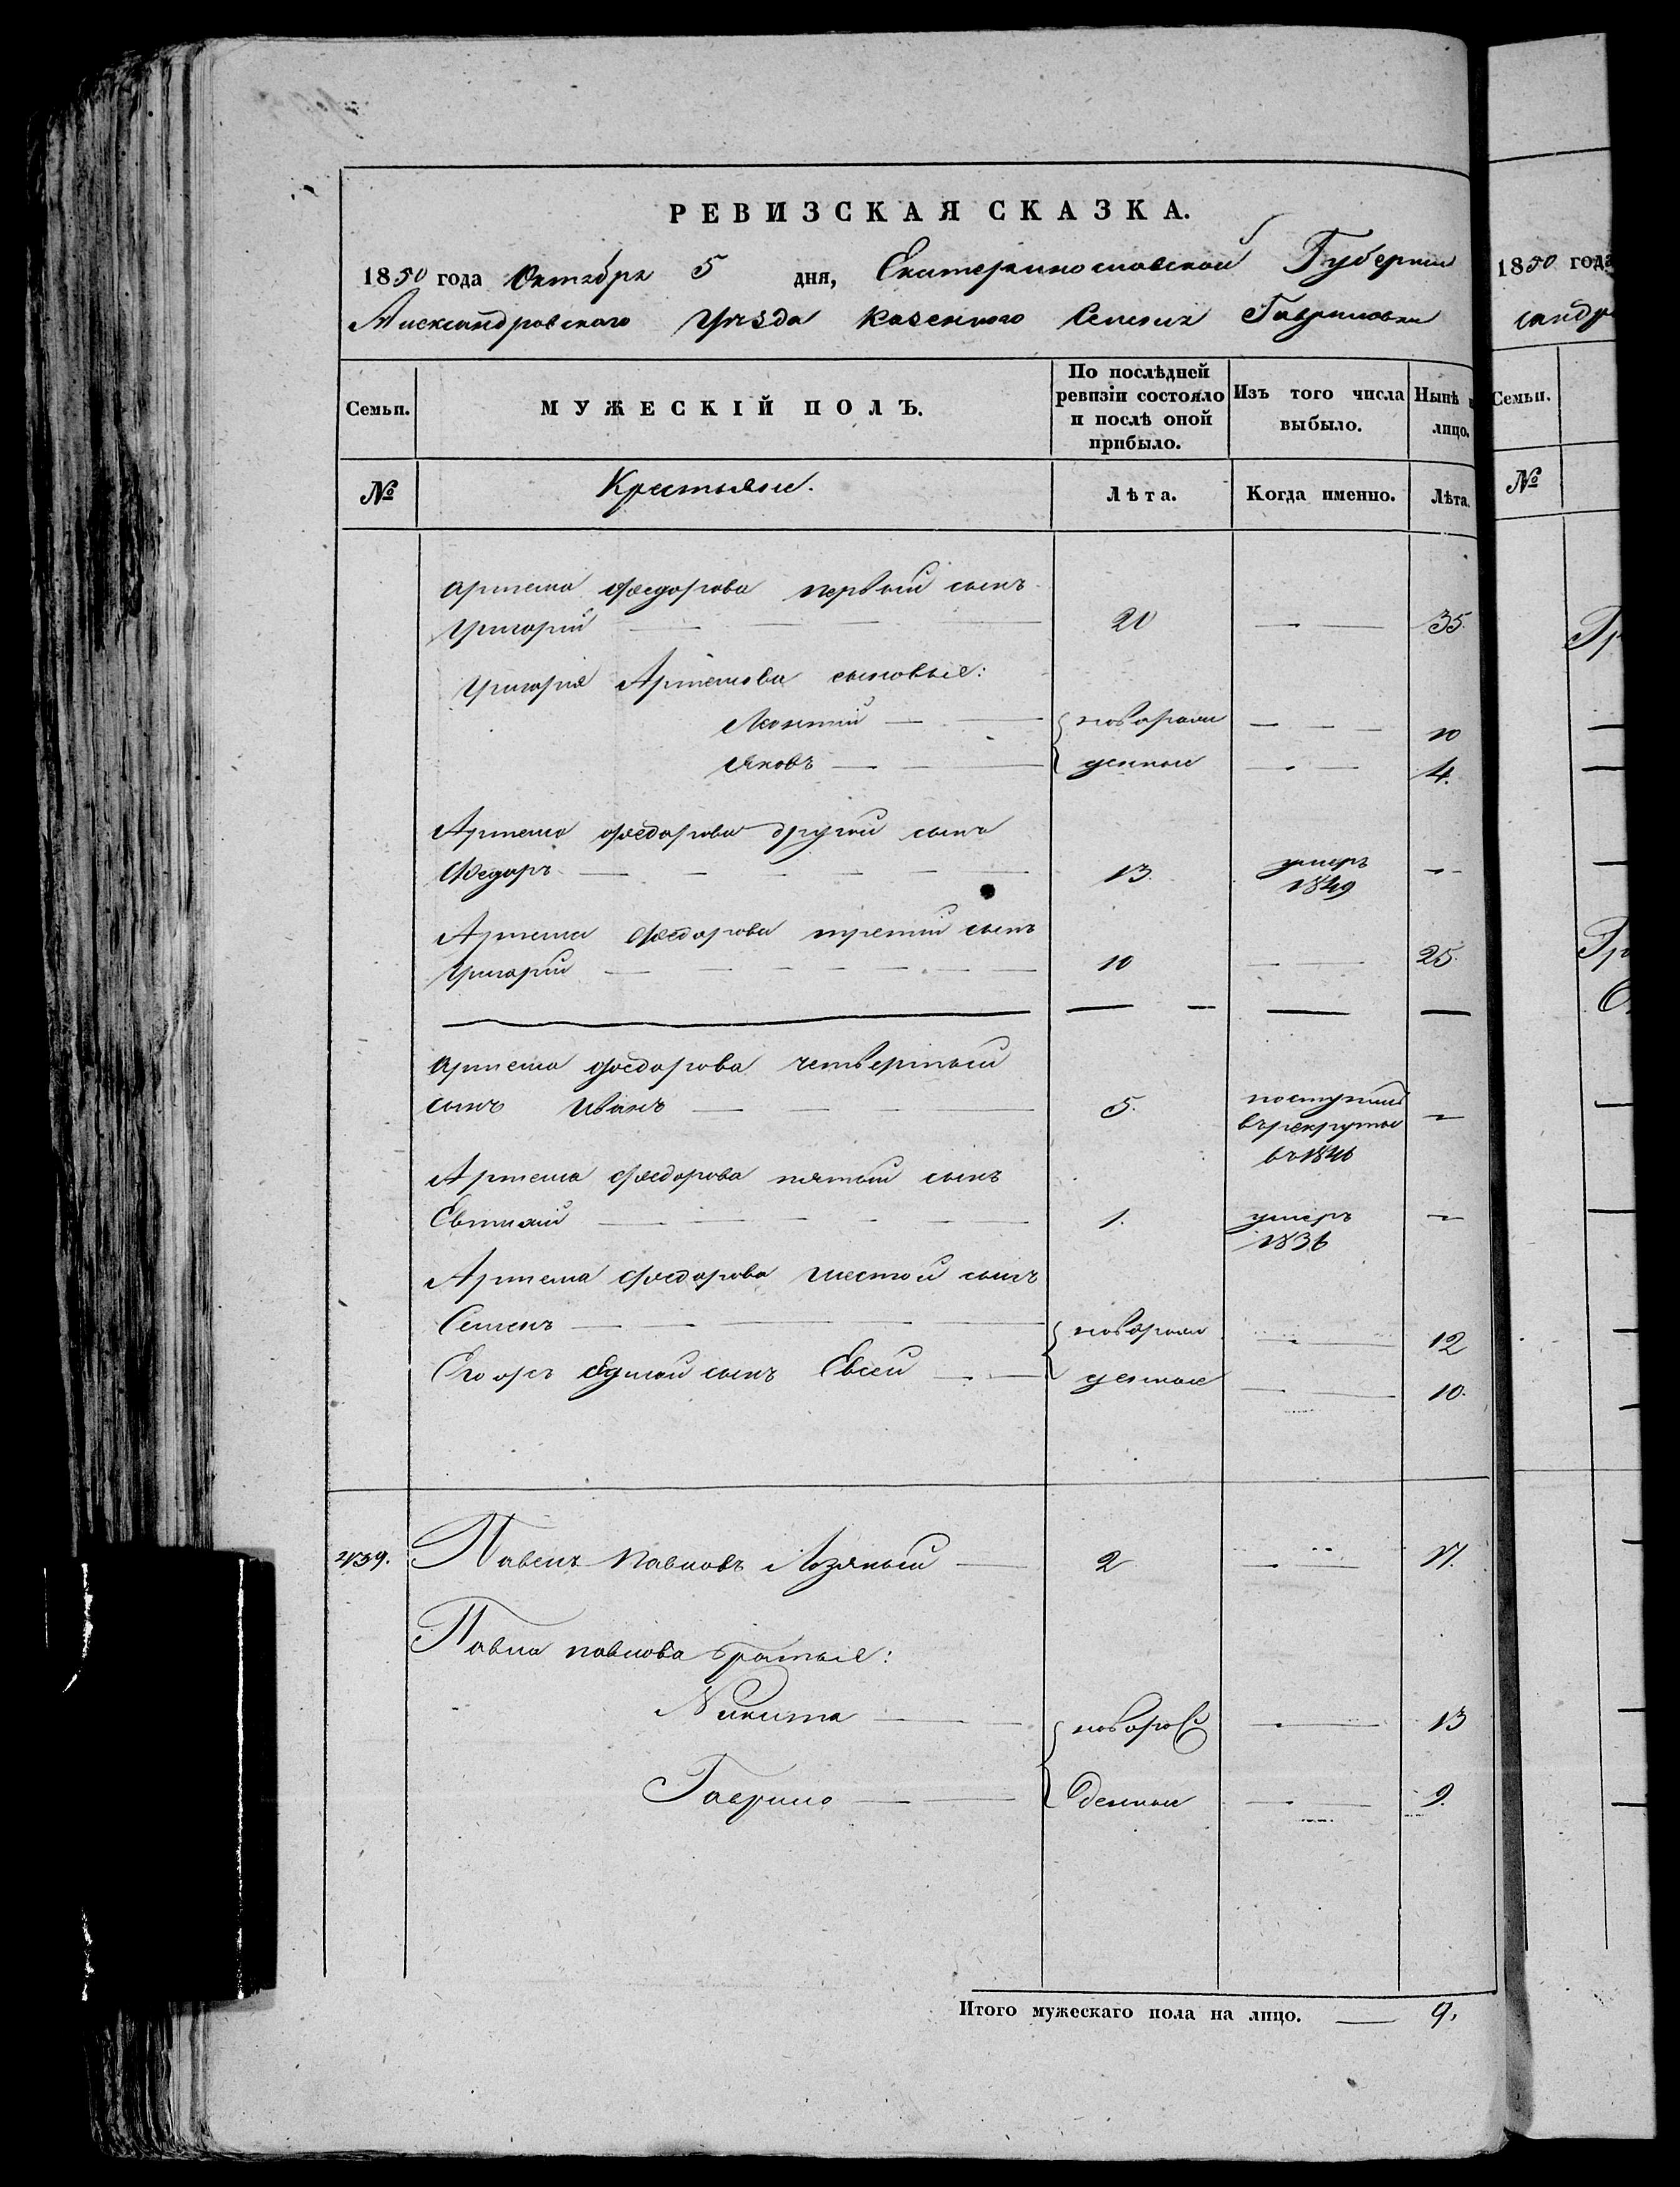 РЕВИЗСКАЯ СКАЗКА.
1850 года Октября 5 дня, Екатеринославской Губернии
Александровского Уѣзда Казенного Селенія Гавриловки
Семьи. МУЖЕСКІЙ ПОЛЪ. По послѣдней ревизіи состояло и послѣ оной прибыло. Изъ того числа выбыло. Нынѣ лицо.
№ Крестьяне. Лѣта. Когда именно. Лѣта.
Артема Федорова первый сынъ
Григорій — — — 20 — — 35.
Григорія Артемова сыновья:
Леонтій — — новорож — — 10
Яковъ — — денные — — 4.
Артема Федорова другой сынъ
Федоръ — — — 13. умеръ 1849 —
Артема Федорова третій сынъ
Григорій — — — 10 — — 25.
Артема Федорова четвертый
сынъ Иванъ — — — 5. поступилъ въ рекруты въ 1846 —
Артема Федорова пятый сынъ
Евтихій — — — 1. умеръ 1836 —
Артема Федорова шестой сынъ
Семенъ — — — новорож — — 12
сынъ Евсей — — денные — — 10.
439. Павелъ Павловъ Лозяный — 2 — — 17.
Павла Павлова братья:
Никита — — новорож — — 13
Гаврило — — денные — — 9.
Итого мужескаго пола на лицо. — 9.
1850 года
сандр
Семьи.
№